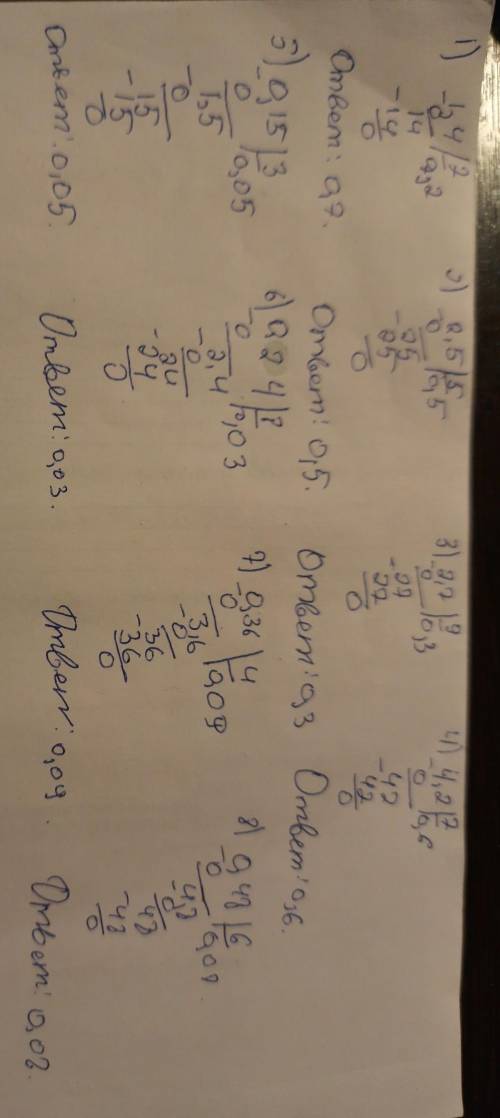 1) -1,4 | 7
0 0,2
14
-14
0
Ответ: 0,7.
2) 2,5 | 5
-0 0,5
25
-25
0
Ответ: 0,5.
3) 2,7 | 9
-0 0,3
27
-27
0
Ответ: 0,3
4) 4,2 | 7
-0 0,6
42
-42
0
Ответ: 0,6.
5) 0,15 | 3
-0 0,05
1,5
-0
15
-15
0
Ответ: 0,05.
6) 0,24 | 8
-0 0,03
2,4
-0
24
-24
0
Ответ: 0,03.
7) 0,36 | 4
-0 0,09
3,6
-0
36
-36
0
Ответ: 0,09.
8) 0,48 | 6
-0 0,08
4,8
-0
48
-48
0
Ответ: 0,08.